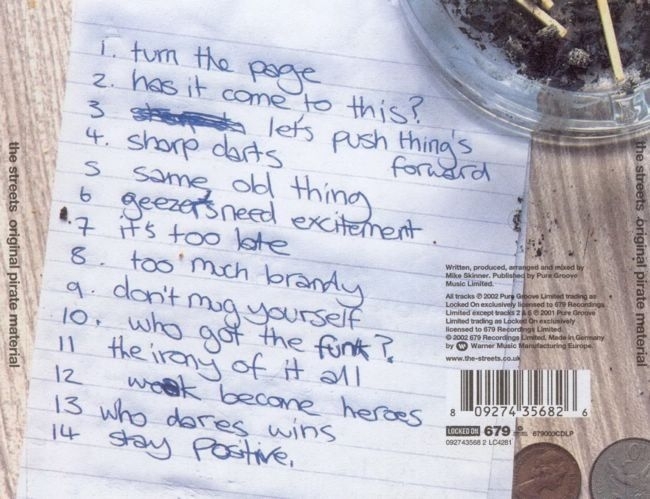 1. turn the page
2. has it come to this?
3 let's push thing's
forward
4. sharp darts
5 same old thing
6 geezers need excitement
.7 it's too late
8. too much brandy
9. don't mug yourself
10. who got the funk?
11 the irony of it all
12 weak become heroes
13 who dares wins
14 stay Positive.
the streets original pirate material
the streets original pirate material
Written, produced, arranged and mixed by
Mike Skinner. Published by Pure Groove
Music Limited.
All tracks ℗ 2002 Pure Groove Limited trading as
Locked On exclusively licensed to 679 Recordings
Limited except tracks 2 & 6 ℗ 2001 Pure Groove
Limited trading as Locked On exclusively
licensed to 679 Recordings Limited.
© 2002 679 Recordings Limited. Made in Germany
by Warner Music Manufacturing Europe.
www.the-streets.co.uk
8 09274 35682 6
LOCKED ON 679 679003CDLP
092743568 2 LC4281